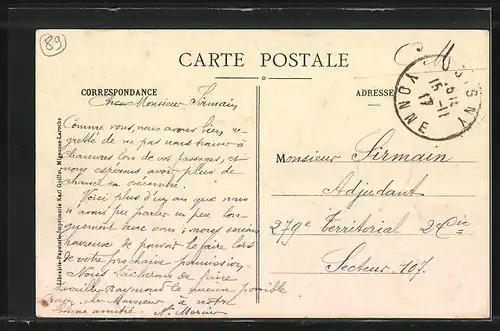 89
CARTE POSTALE
C.M.
CORRESPONDANCE
ADRESSE
YONNE
15-11
17
Cher Monsieur Sirmain
Comme vous, nous avons bien re-
gretté de ne pas nous trouver à
chaumes lors de vos passages, et
nous espérons avoir plus de
chance en décembre.
Voici plus d'un an que nous
n'avons pu parler un peu lon-
guement avec vous ; nous serions
heureuse de pouvoir le faire lors
de votre prochaine permission.
Nous tâcherons de faire
travailler raymond le mieux possible
cher Monsieur à notre
bonne amitié. N. Mercier
Monsieur Sirmain
Adjudant
279e Territorial 24 Cie
Secteur 107.
Librairie-Papeterie-Imprimerie Karl Guillot, Migennes-Laroche